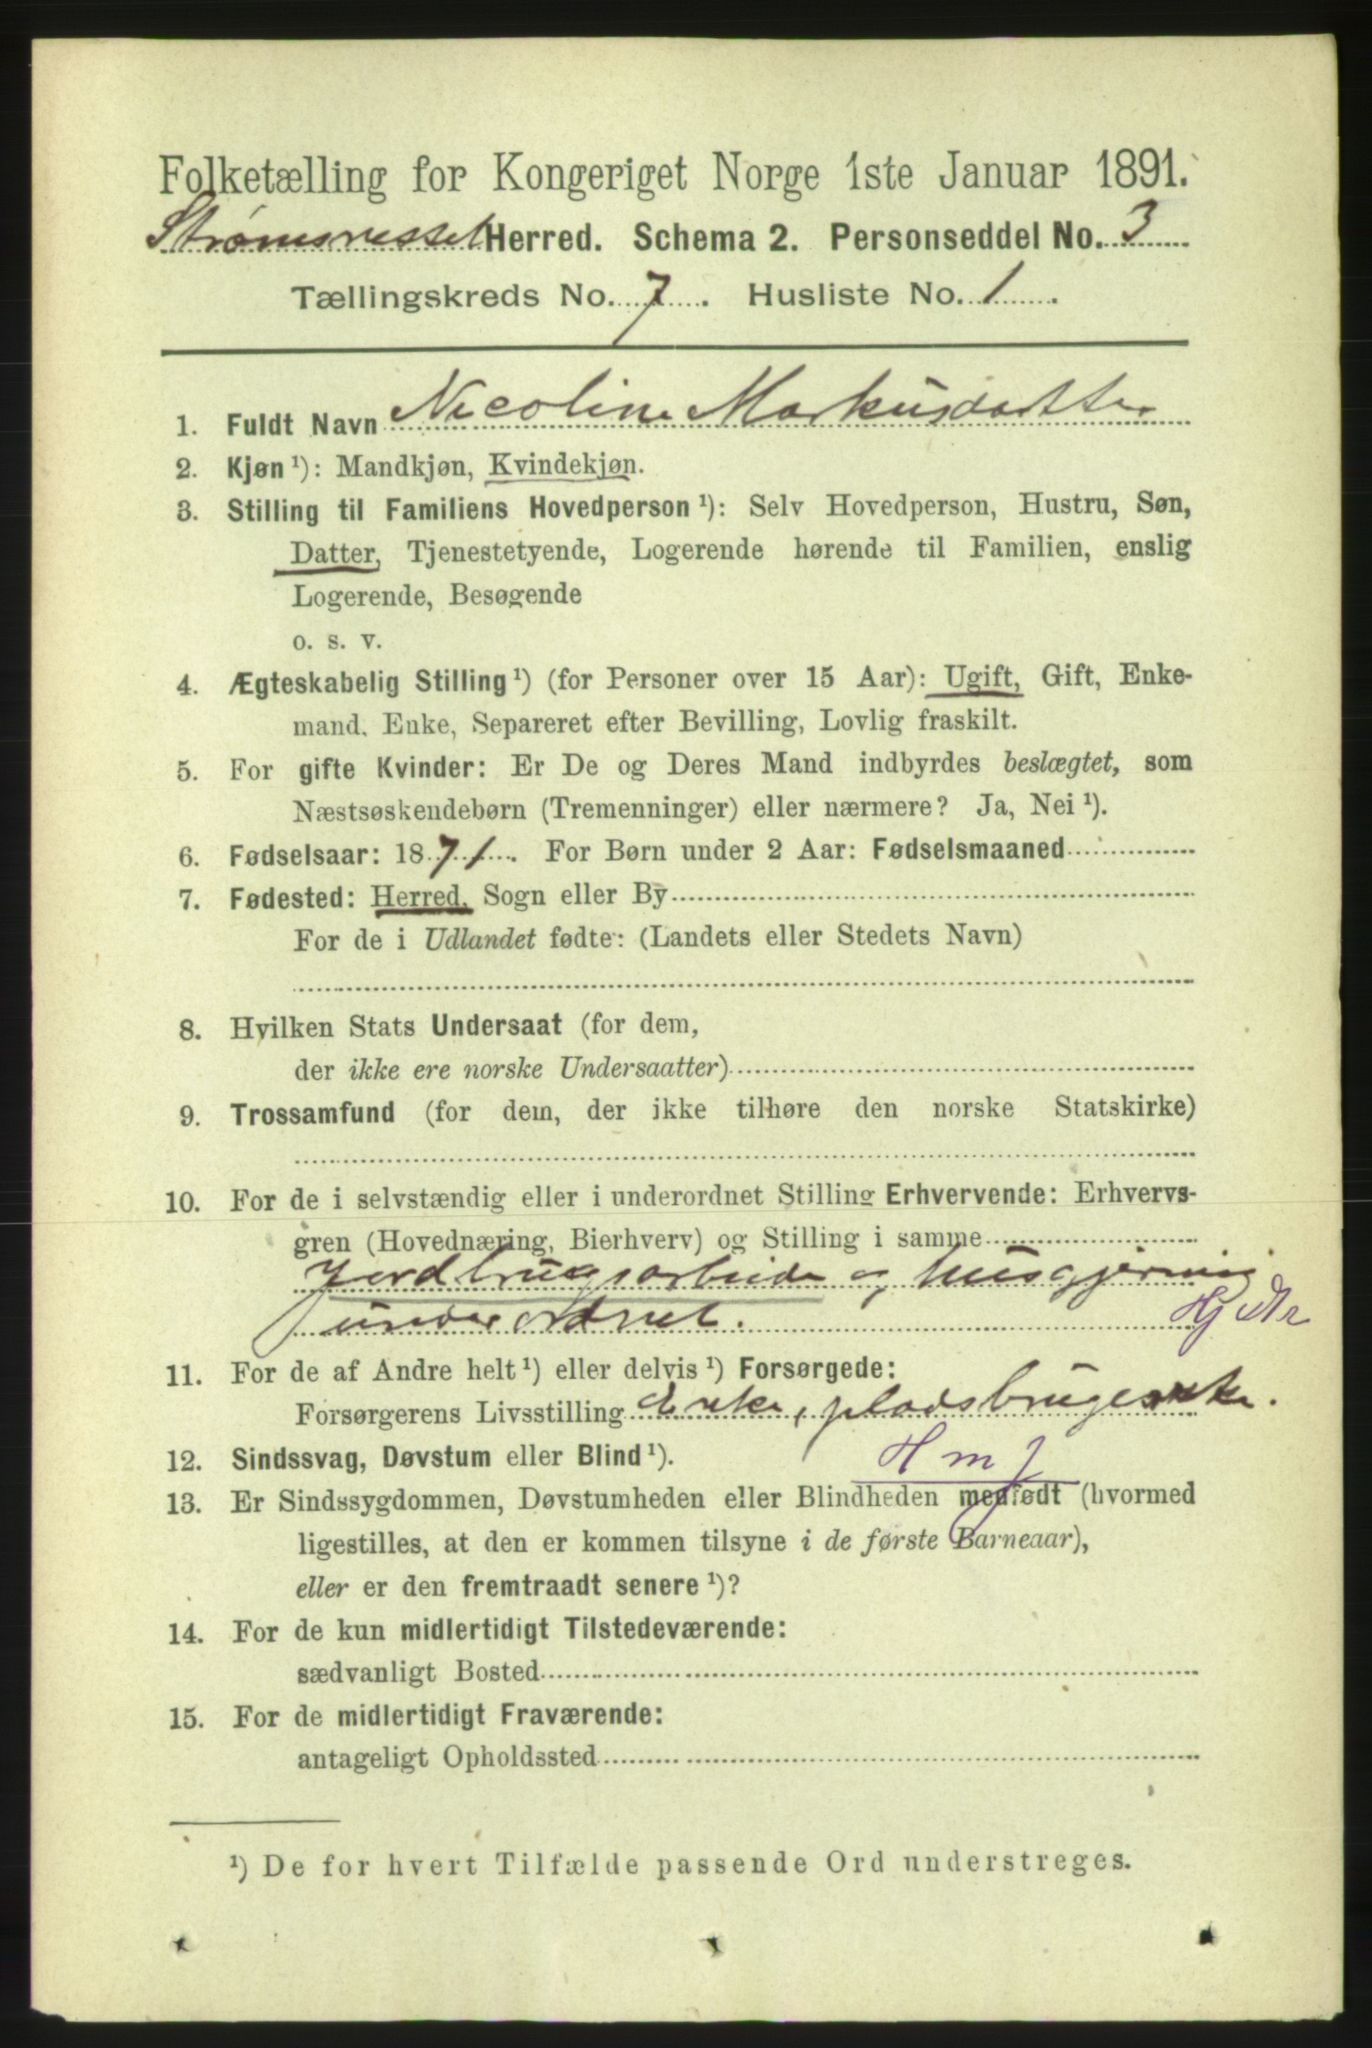 Folketælling for Kongeriget Norge 1ste Januar 1891.
Strømmesset Herred. Schema 2. Personseddel No. 3
Tællingskreds No. 7. Husliste No. 1.
1. Fuldt Navn Nicoline Markusdatter
2. Kjøn ¹): Mandkjøn, Kvindekjøn.
3. Stilling til Familiens Hovedperson ¹): Selv Hovedperson, Hustru, Søn,
Datter, Tjenestetyende, Logerende hørende til Familien, enslig
Logerende, Besøgende
o. s. v.
4. Ægteskabelig Stilling ¹) (for Personer over 15 Aar): Ugift, Gift, Enke-
mand, Enke, Separeret efter Bevilling, Lovlig fraskilt.
5. For gifte Kvinder: Er De og Deres Mand indbyrdes beslægtet, som
Næstsøskendebørn (Tremenninger) eller nærmere? Ja, Nei ¹).
6. Fødselsaar: 1871. For Børn under 2 Aar: Fødselsmaaned
7. Fødested: Herred, Sogn eller By
For de i Udlandet fødte: (Landets eller Stedets Navn)
8. Hvilken Stats Undersaat (for dem,
der ikke ere norske Undersaatter)
9. Trossamfund (for dem, der ikke tilhøre den norske Statskirke)
10. For de i selvstændig eller i underordnet Stilling Erhvervende: Erhvervs-
gren (Hovednæring, Bierhverv) og Stilling i samme
Jordbrugsarbeide og husgjerning
underordnet.
11. For de af Andre helt ¹) eller delvis ¹) Forsørgede:
Forsørgerens Livsstilling Enke, pladsbrugerske.
12. Sindssvag, Døvstum eller Blind ¹). H m J
13. Er Sindssygdommen, Døvstumheden eller Blindheden medfødt (hvormed
ligestilles, at den er kommen tilsyne i de første Barneaar),
eller er den fremtraadt senere ¹)?
14. For de kun midlertidigt Tilstedeværende:
sædvanligt Bosted
15. For de midlertidigt Fraværende:
antageligt Opholdssted
¹) De for hvert Tilfælde passende Ord understreges.